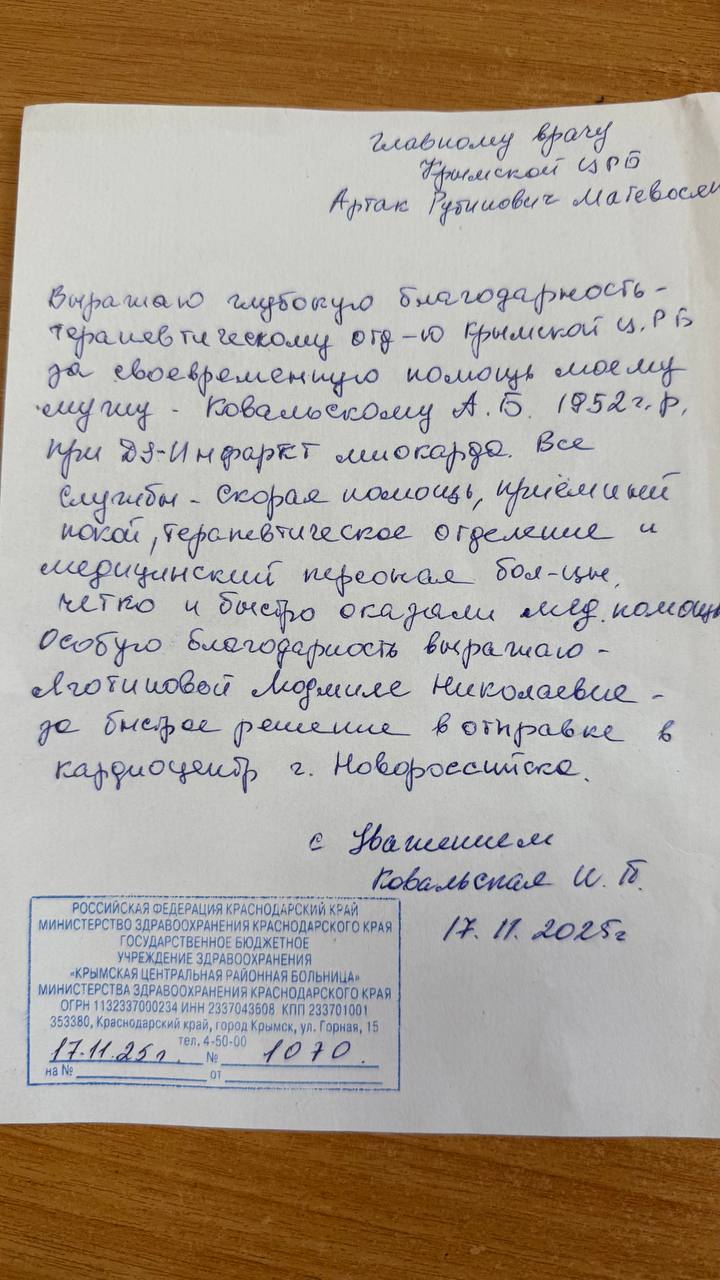 Главному врачу
Крымской ЦРБ
Артак Рутинович Матевосян
Выражаю глубокую благодарность -
терапевтическому отд-ю Крымской Ц.РБ
за своевременную помощь моему
мужу - Ковальскому А.Б. 1952г.р.
при DS-Инфаркт миокарда. Все
службы - Скорая помощь, приёмный
покой, терапевтическое отделение и
медицинский персонал бол-цы,
четко и быстро оказали мед. помощь
Особую благодарность выражаю -
Яготиновой Людмиле Николаевне -
за быстрое решение в отправке в
кардиоцентр г. Новороссийска.
с Уважением
Ковальская И.
17.11.2025г
РОССИЙСКАЯ ФЕДЕРАЦИЯ КРАСНОДАРСКИЙ КРАЙ
МИНИСТЕРСТВО ЗДРАВООХРАНЕНИЯ КРАСНОДАРСКОГО КРАЯ
ГОСУДАРСТВЕННОЕ БЮДЖЕТНОЕ
УЧРЕЖДЕНИЕ ЗДРАВООХРАНЕНИЯ
«КРЫМСКАЯ ЦЕНТРАЛЬНАЯ РАЙОННАЯ БОЛЬНИЦА»
МИНИСТЕРСТВА ЗДРАВООХРАНЕНИЯ КРАСНОДАРСКОГО КРАЯ
ОГРН 1132337000234 ИНН 2337043508 КПП 233701001
353380, Краснодарский край, город Крымск, ул. Горная, 15
тел. 4-50-00
17.11.25г. № 1070.
на № от